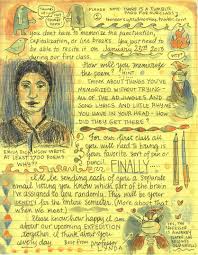 PLEASE NOTE: THERE IS A TUMBLR
You don't have to memorize the punctuation,
capitalization, or line breaks. You just need to
be able to recite it on January 25th 2013
during our first class.
How will you memorize
the poem? HINT:
THINK ABOUT THINGS YOU'VE
MEMORIZED WITHOUT TRYING-
ALL OF THE AD JINGLES AND
SONG LYRICS AND LITTLE RHYMES
YOU HAVE IN YOUR HEAD - HOW
DID THEY GET THERE?
For our first class all
you will need to bring is
your favorite sort of pen or
pencil.
EMILY DICKINSON WROTE
AT LEAST 1700 POEMS
WHY??
FINALLY
I'll be sending each of you a separate
email letting you know which part of the brain
I've assigned to you randomly. This will be your
for the entire semester. (More about that
when we meet.)
Please know how happy I am
about our upcoming EXPEDITION
together. & thank you
lovely day
Best from professor
LYNDA